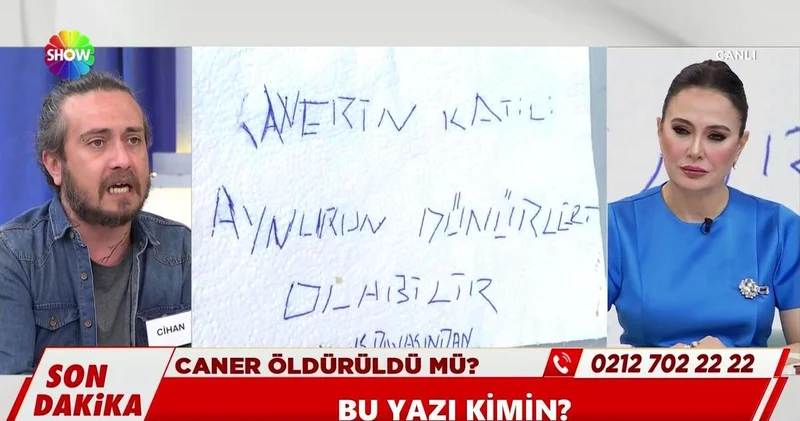 SHOW
CANLI
CANERİN KATİLİ
AYNURUN DÜNÜRLERİ
OLABİLİR
CİHAN
SON
DAKİKA
CANER ÖLDÜRÜLDÜ MÜ?
0212 702 22 22
BU YAZI KİMİN?